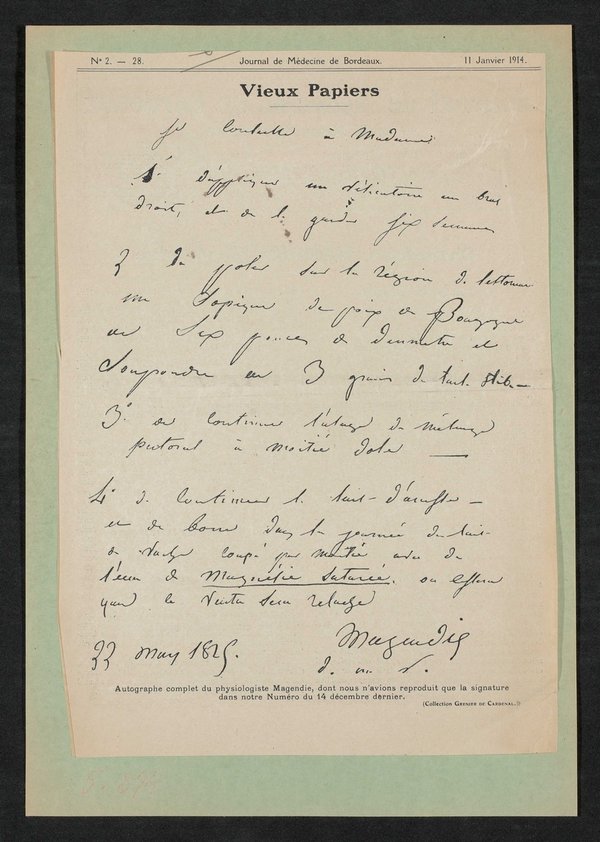 Nº 2. — 28.
Journal de Médecine de Bordeaux.
11 Janvier 1914.
Vieux Papiers
je Conseille à Madame
1º d'appliquer un vésicatoire au bras
droit, et de le garder six semaines
2 de poser sur la région de l'estomac
un Topique de poix de Bourgogne
de Six pouces de diametre et
Saupoudré de 3 grains de tart. Stibié
3º de Continuer l'usage du mélange
pectoral à moitié dose —
4º de Continuer le lait d'anesse —
et de boire dans la journée du lait
de vache coupé par moitié avec de
l'eau de Magnésie Saturée. on cessera
quand le ventre sera relaché
22 may 1825.
Magendie
d. m. P.
Autographe complet du physiologiste Magendie, dont nous n'avions reproduit que la signature
dans notre Numéro du 14 décembre dernier.
(Collection GRENIER DE CARDENAL.)